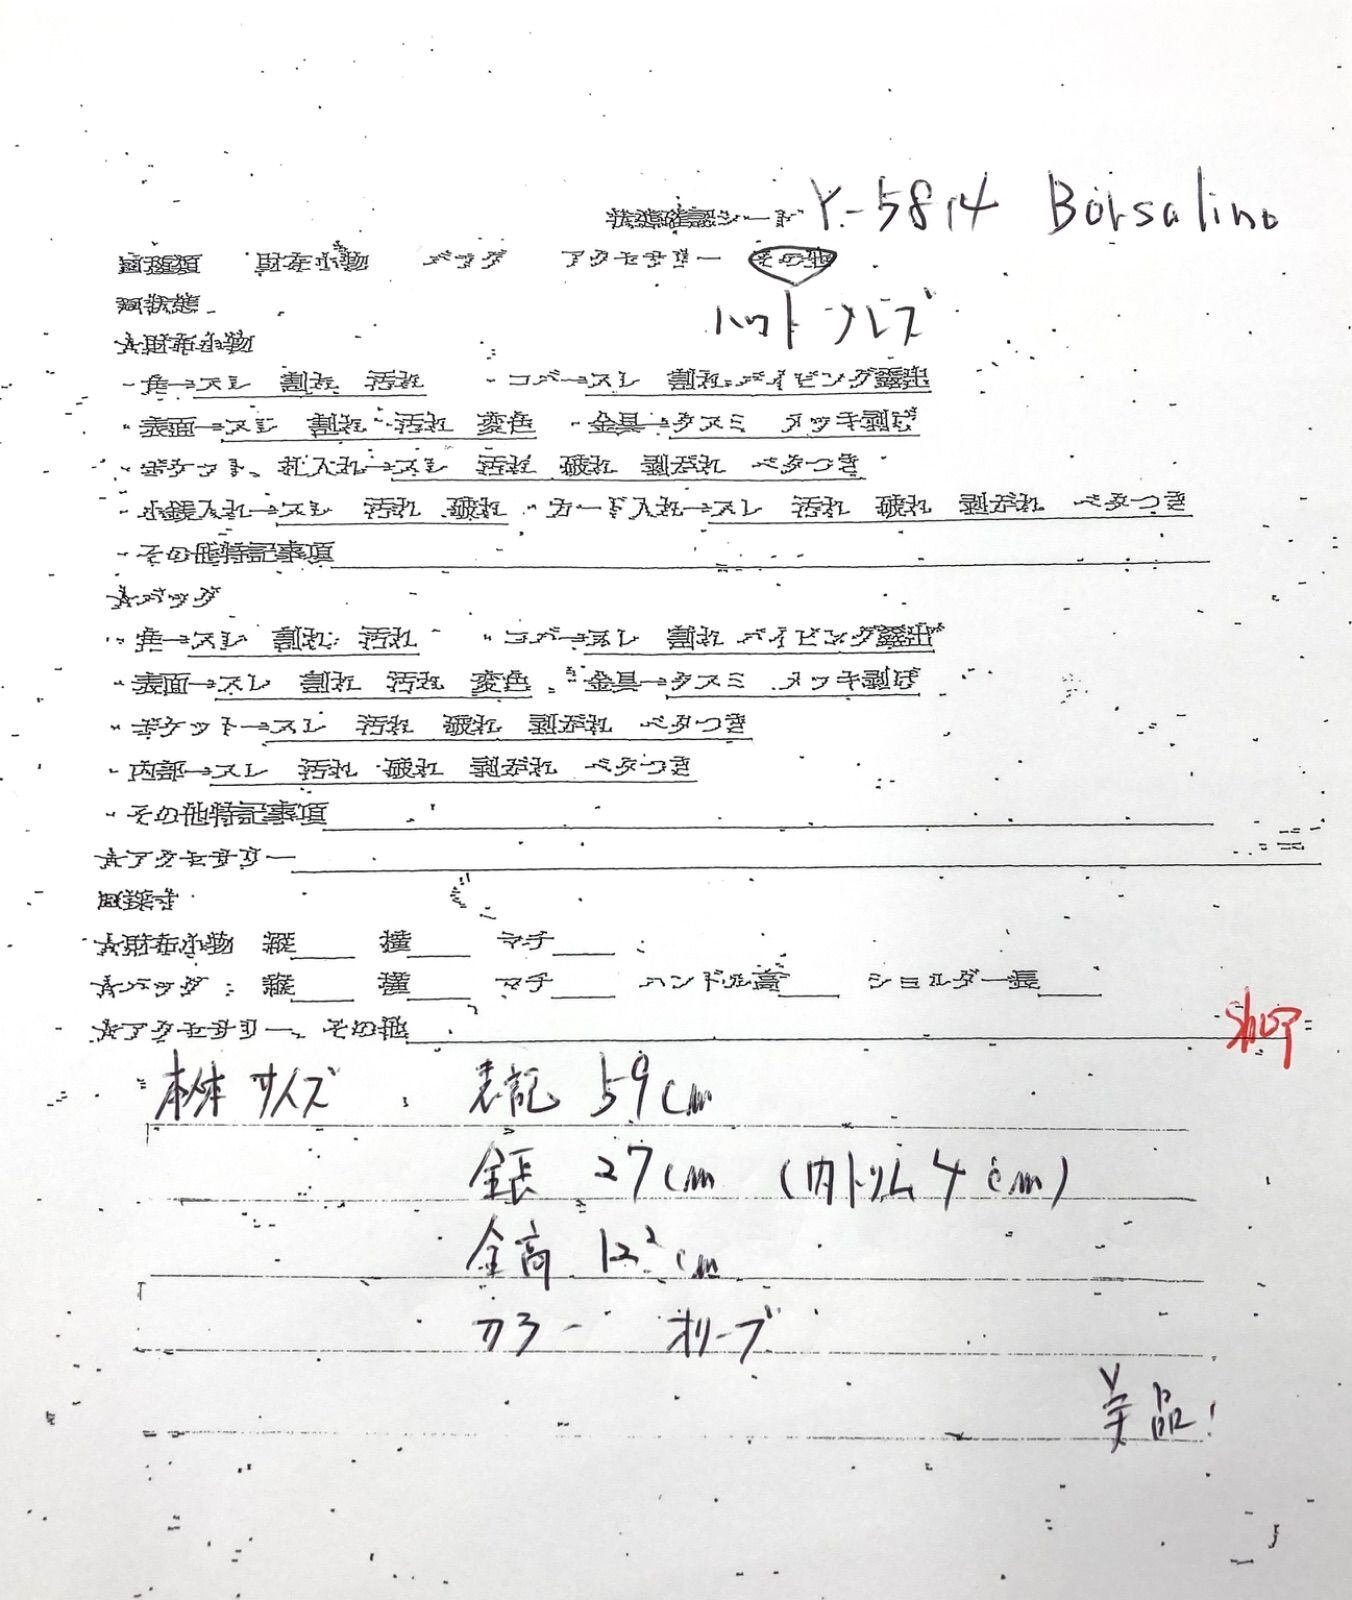 状態確認シート Y-5814 Borsalino
財布小物 バッグ アクセサリー その他
回状態 ハット メンズ
☆財布小物
・角→スレ 割れ 汚れ ・コバ→スレ 割れ パイピング露出
・表面→スレ 割れ 汚れ 変色 ・金具→クスミ メッキ剥げ
・ポケット、札入れ→スレ 汚れ 破れ 剥がれ ベタつき
・小銭入れ→スレ 汚れ 破れ ・カード入れ→スレ 汚れ 破れ 剥がれ ベタつき
・その他特記事項
☆バッグ
・角→スレ 割れ 汚れ ・コバ→スレ 割れ パイピング露出
・表面→スレ 割れ 汚れ 変色 ・金具→クスミ メッキ剥げ
・ポケット→スレ 汚れ 破れ 剥がれ ベタつき
・内部→スレ 汚れ 破れ 剥がれ ベタつき
・その他特記事項
☆アクセサリー
回採寸
☆財布小物 縦 横 マチ
☆バッグ: 縦 横 マチ ハンドル高 ショルダー長
☆アクセサリー、その他
本体サイズ 表記 59cm
全長 27cm (内トリム4cm)
全高 12²cm
カラー オリーブ
美品!